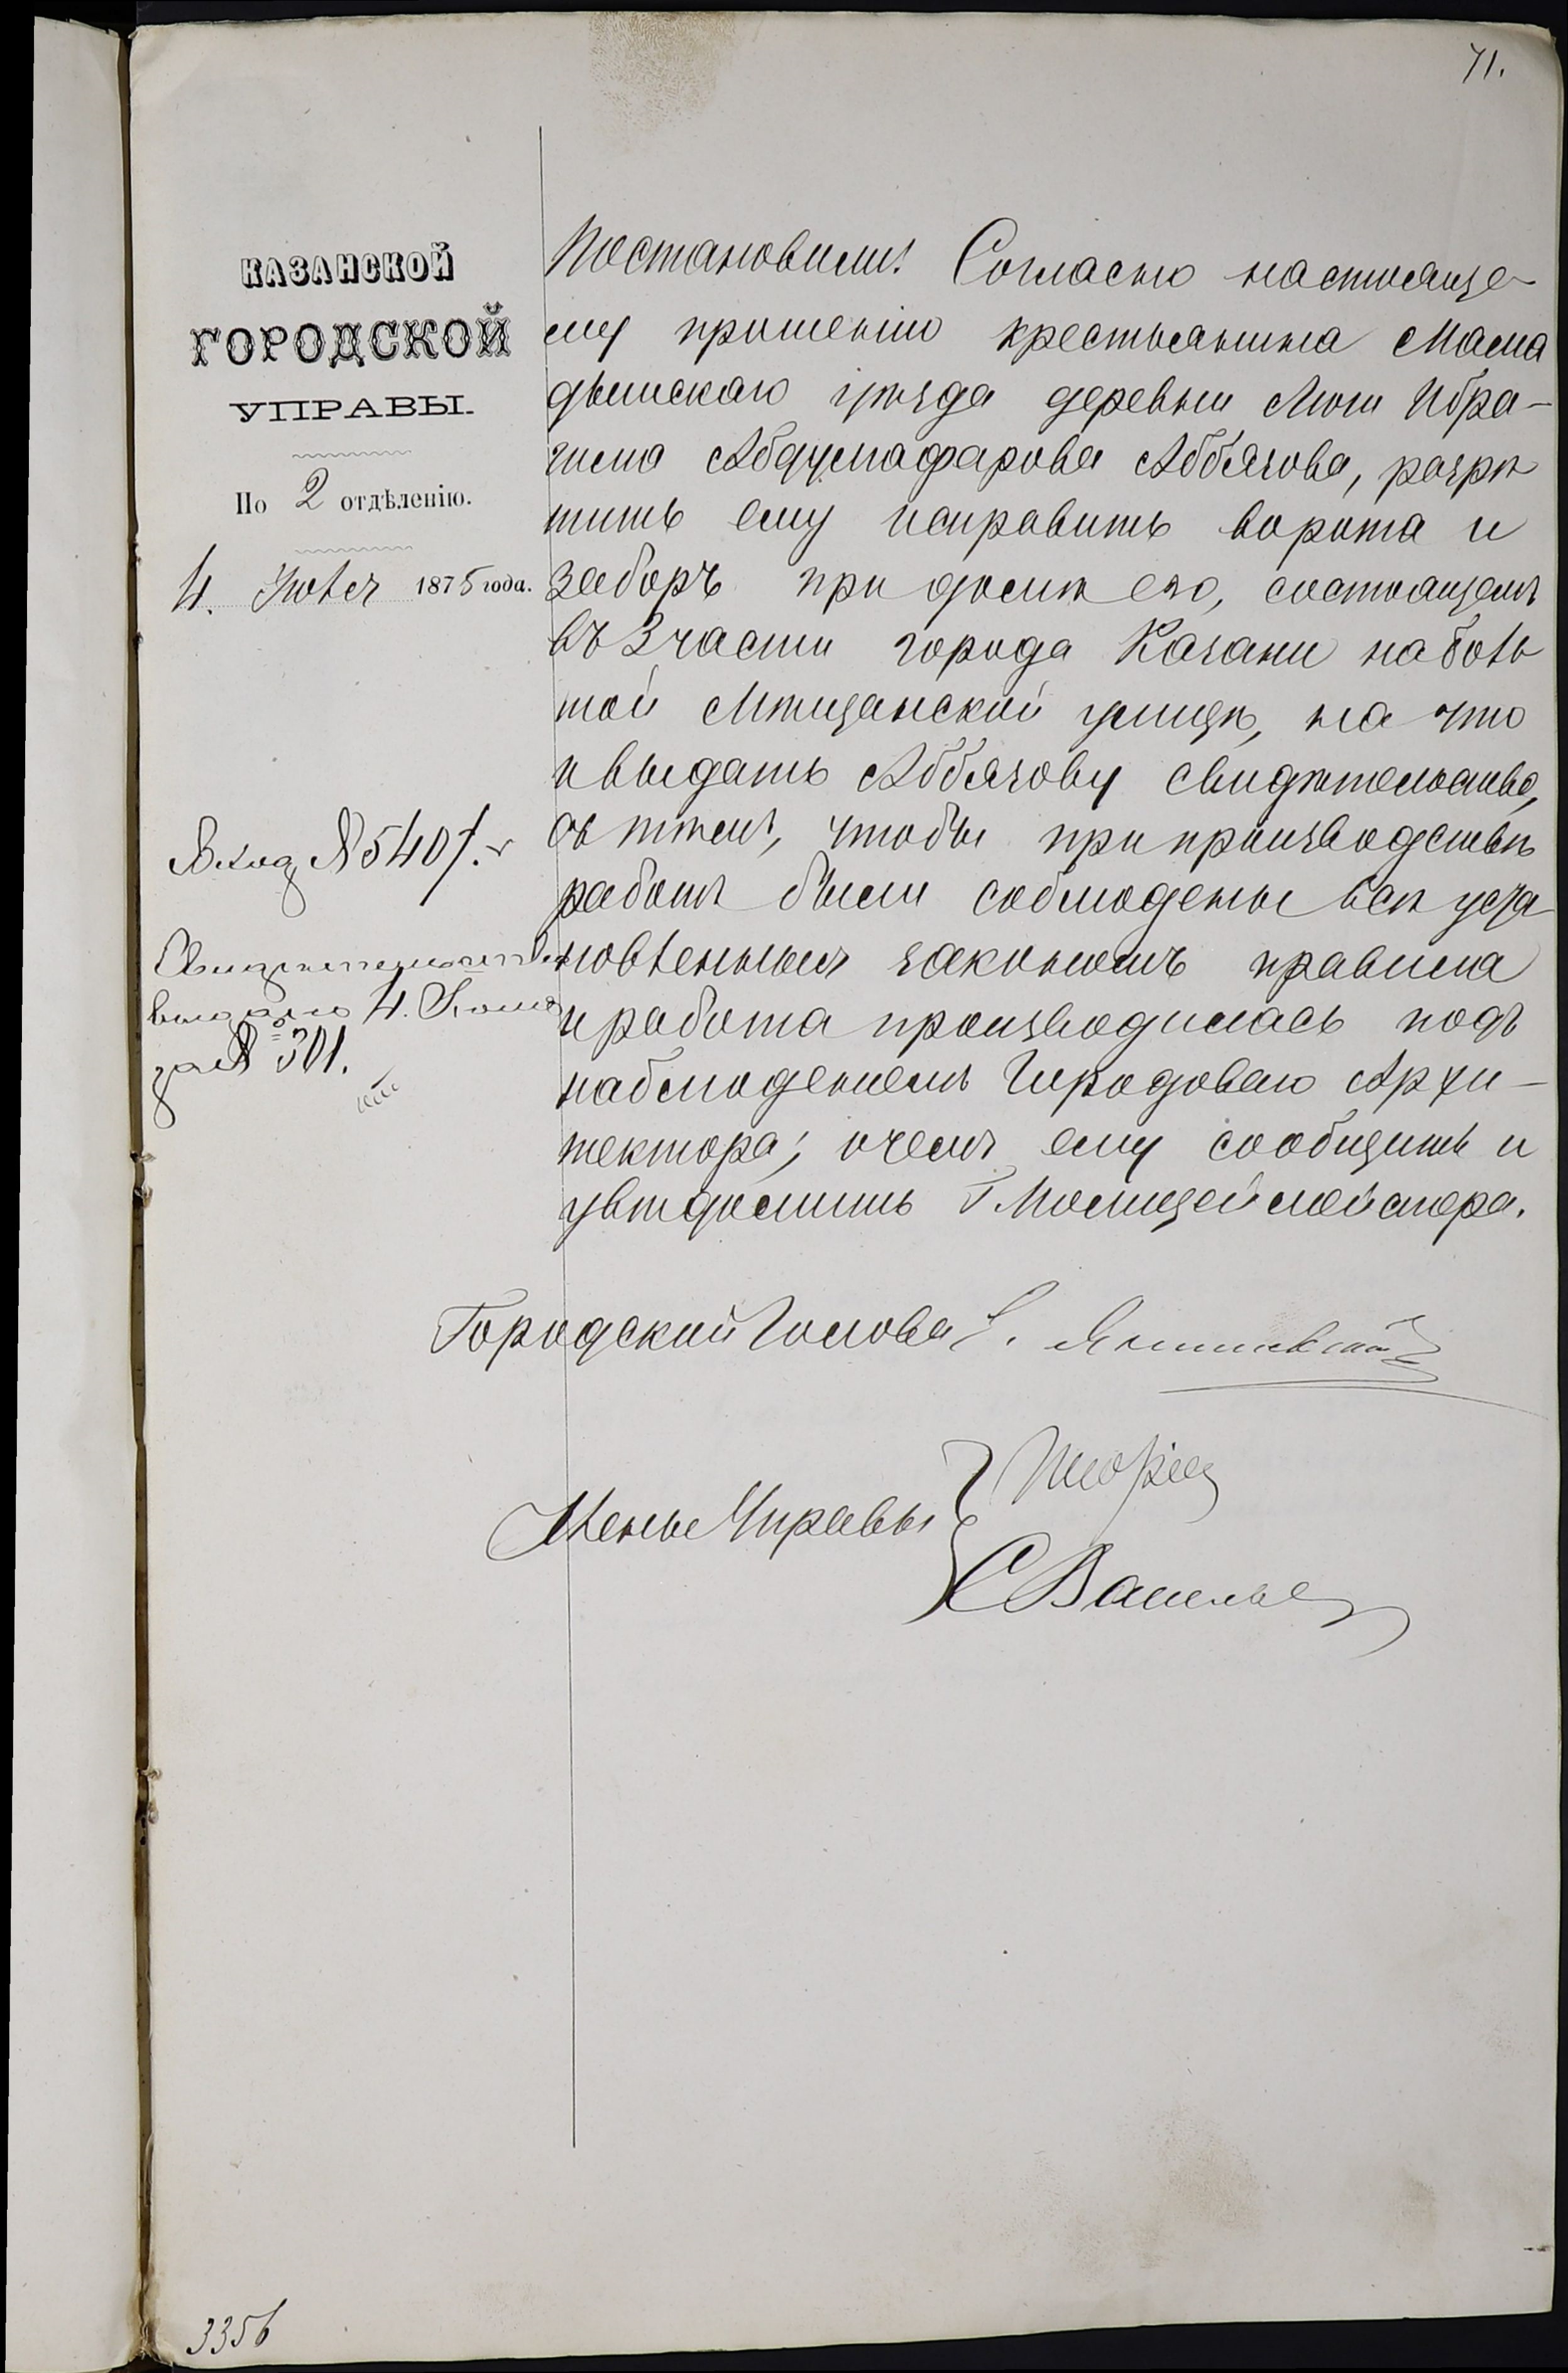 71.
КАЗАНСКОЙ
ГОРОДСКОЙ
УПРАВЫ.
По 2 отдѣленію.
4. Июля 1875 года.
Вход № 5407.
Свидѣтельство
выдано 4. Июля
за № 301.
Постановили: Согласно настояще-
му прошенію крестьянина Мама
дышскаго уѣзда деревни Люги Ибра-
гима Абдулгафарова Аббязова, разрѣ
шить ему исправить ворота и
заборъ при домѣ его, состоящемъ
въ 3 части города Казани на боль
шой Мѣщанской улицѣ, на что
и выдать Аббязову свидѣтельство,
съ тѣмъ, чтобы при производствѣ
работъ были соблюдены всѣ уста
новленныя закономъ правила
и работа производилась подъ
наблюденіемъ Городоваго Архи-
тектора; о чемъ ему сообщить и
увѣдомить Г. Полицеймейстера.
Городской Голова Э. Янишевскій
Члены Управы
С Васильев
3356